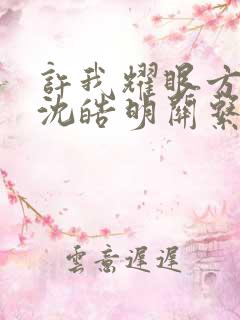 許我耀眼方
沈皓明關繫
雲意遲遲